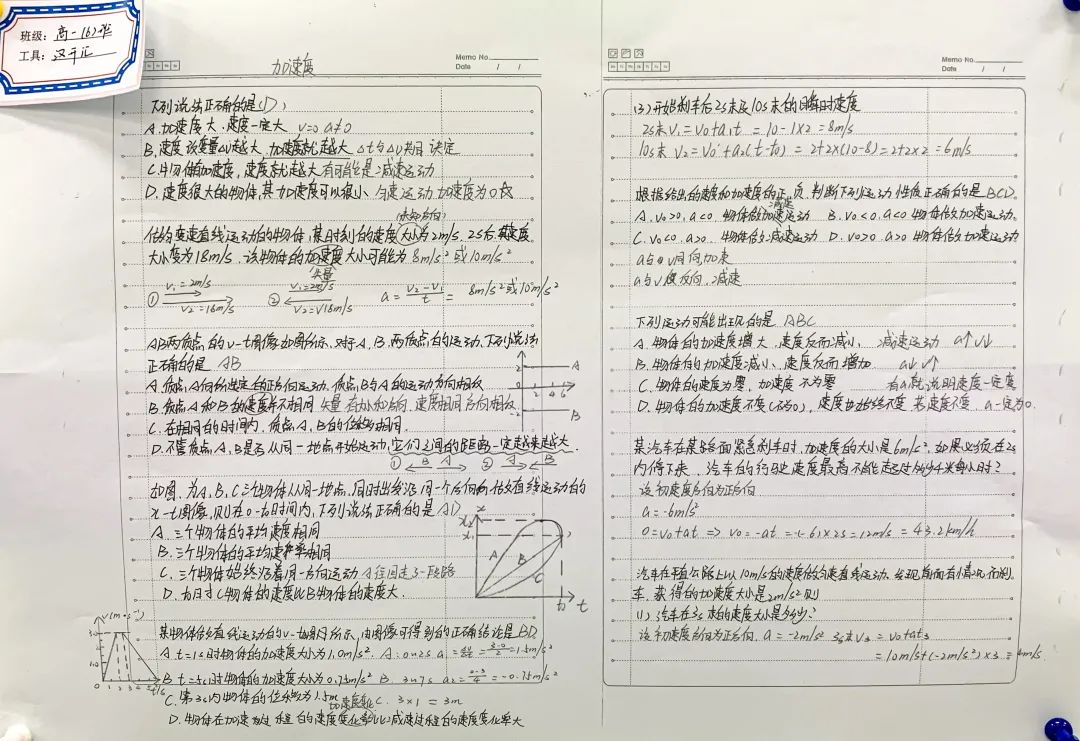 班级：高一(6)班
工具：
Memo No.
Date / /
加速度
下列说法正确的是(D)
A.加速度大，速度一定大 v=0 a≠0
B.速度改变量△v越大，加速度就越大 △t与△v共同决定
C.物体有加速度，速度就越大 有可能是减速运动
D.速度很大的物体，其加速度可以很小 匀速运动 加速度为0
(未知方向)
做匀变速直线运动的物体，某时刻的速度大小为2m/s. 2s后其速度
大小变为18m/s，该物体的加速度大小可能为 8m/s² 或10m/s²
矢量
① v₁=2m/s ② v₁=2m/s a = v₂-v₁/t = 8m/s²或10m/s²
v₂=18m/s v₂=18m/s
AB两质点的v-t图像如图所示，对于A、B两质点的运动，下列说法
正确的是 AB
A.质点A向所选定的正方向运动，质点B与A的运动方向相反
B.质点A和B的速度并不相同 矢量 有大小和方向，速度相同 方向相反
C.在相同的时间内，质点A、B的位移相同.
D.不管质点A、B是否从同一地点开始运动，它们之间的距离一定越来越大
① B A ② A B
2
0
2 4 6
-2
A
B
如图，为A、B、C三个物体从同一地点，同时出发沿同一个方向做直线运动的
x-t图像，则在0-t₀时间内，下列说法正确的是 AD
A.三个物体的平均速度相同
B.三个物体的平均速率相同
C.三个物体始终沿着同一方向运动 A往回走了一段路
D.t₀时C物体的速度比B物体的速度大.
x
A
B
C
t₀ t
某物体做直线运动的v-t图如图所示，由图像可得到的正确结论是BD
A.t=1s时物体的加速度大小为1.0m/s². A:0~2s a = = 3-0/2 = 1.5m/s²
B t=5s时物体的加速度大小为0.75m/s² B. 3~7s a₂= 0-3/4 = -0.75m/s²
C.第3s内物体的位移为1.5m C. 3×1 = 3m
加速度变化
D.物体在加速过程的速度变化率比减速过程的速度变化率大
v(m·s⁻¹)
t/s
Memo No.
Date / /
(3)开始刹车后2s末及10s末的瞬时速度
2s末 v₁=v₀+a₁t = 10-1×2 = 8m/s
10s末 v₂ = v₀'+a₂(t-t₀) = 2+2×(10-8)=2+2×2 =6m/s
根据给出的速度和加速度的正、负，判断下列运动性质正确的是BCD.
减速
A.v₀>0，a<0 物体做加速运动 B. v₀<0 a<0 物体做加速运动.
C.v₀<0 a>0 物体做减速运动 D. v₀>0 a>0 物体做加速运动
a与v同向加速
a与v反向，减速
下列运动可能出现的是 ABC
A.物体的加速度增大，速度反而减小， 减速运动 a↑v↓
B.物体的加速度减小，速度反而增加 a↓v↑
C.物体的速度为零，加速度不为零
D.物体的加速度不变(不为0)，速度也始终不变 速度不变 a一定为0
某汽车在某路面紧急刹车时，加速度的大小是6m/s²，如果必须在2s
内停下来，汽车的行驶速度最高不能超过多少千米每小时？
设初速度方向为正方向
a = -6m/s²
0=v₀+at ⇒ v₀=-at =-(-6)×2s =12m/s = 43.2km/h
汽车在平直公路上以10m/s的速度做匀速直线运动，发现前面有情况而刹
车，获得的加速度大小是2m/s²则
(1)汽车在3s末的速度大小是多少？
设初速度方向为正方向. a = -2m/s² 3s末v₃=v₀+at₃
=10m/s+(-2m/s²)×3 = 4m/s.